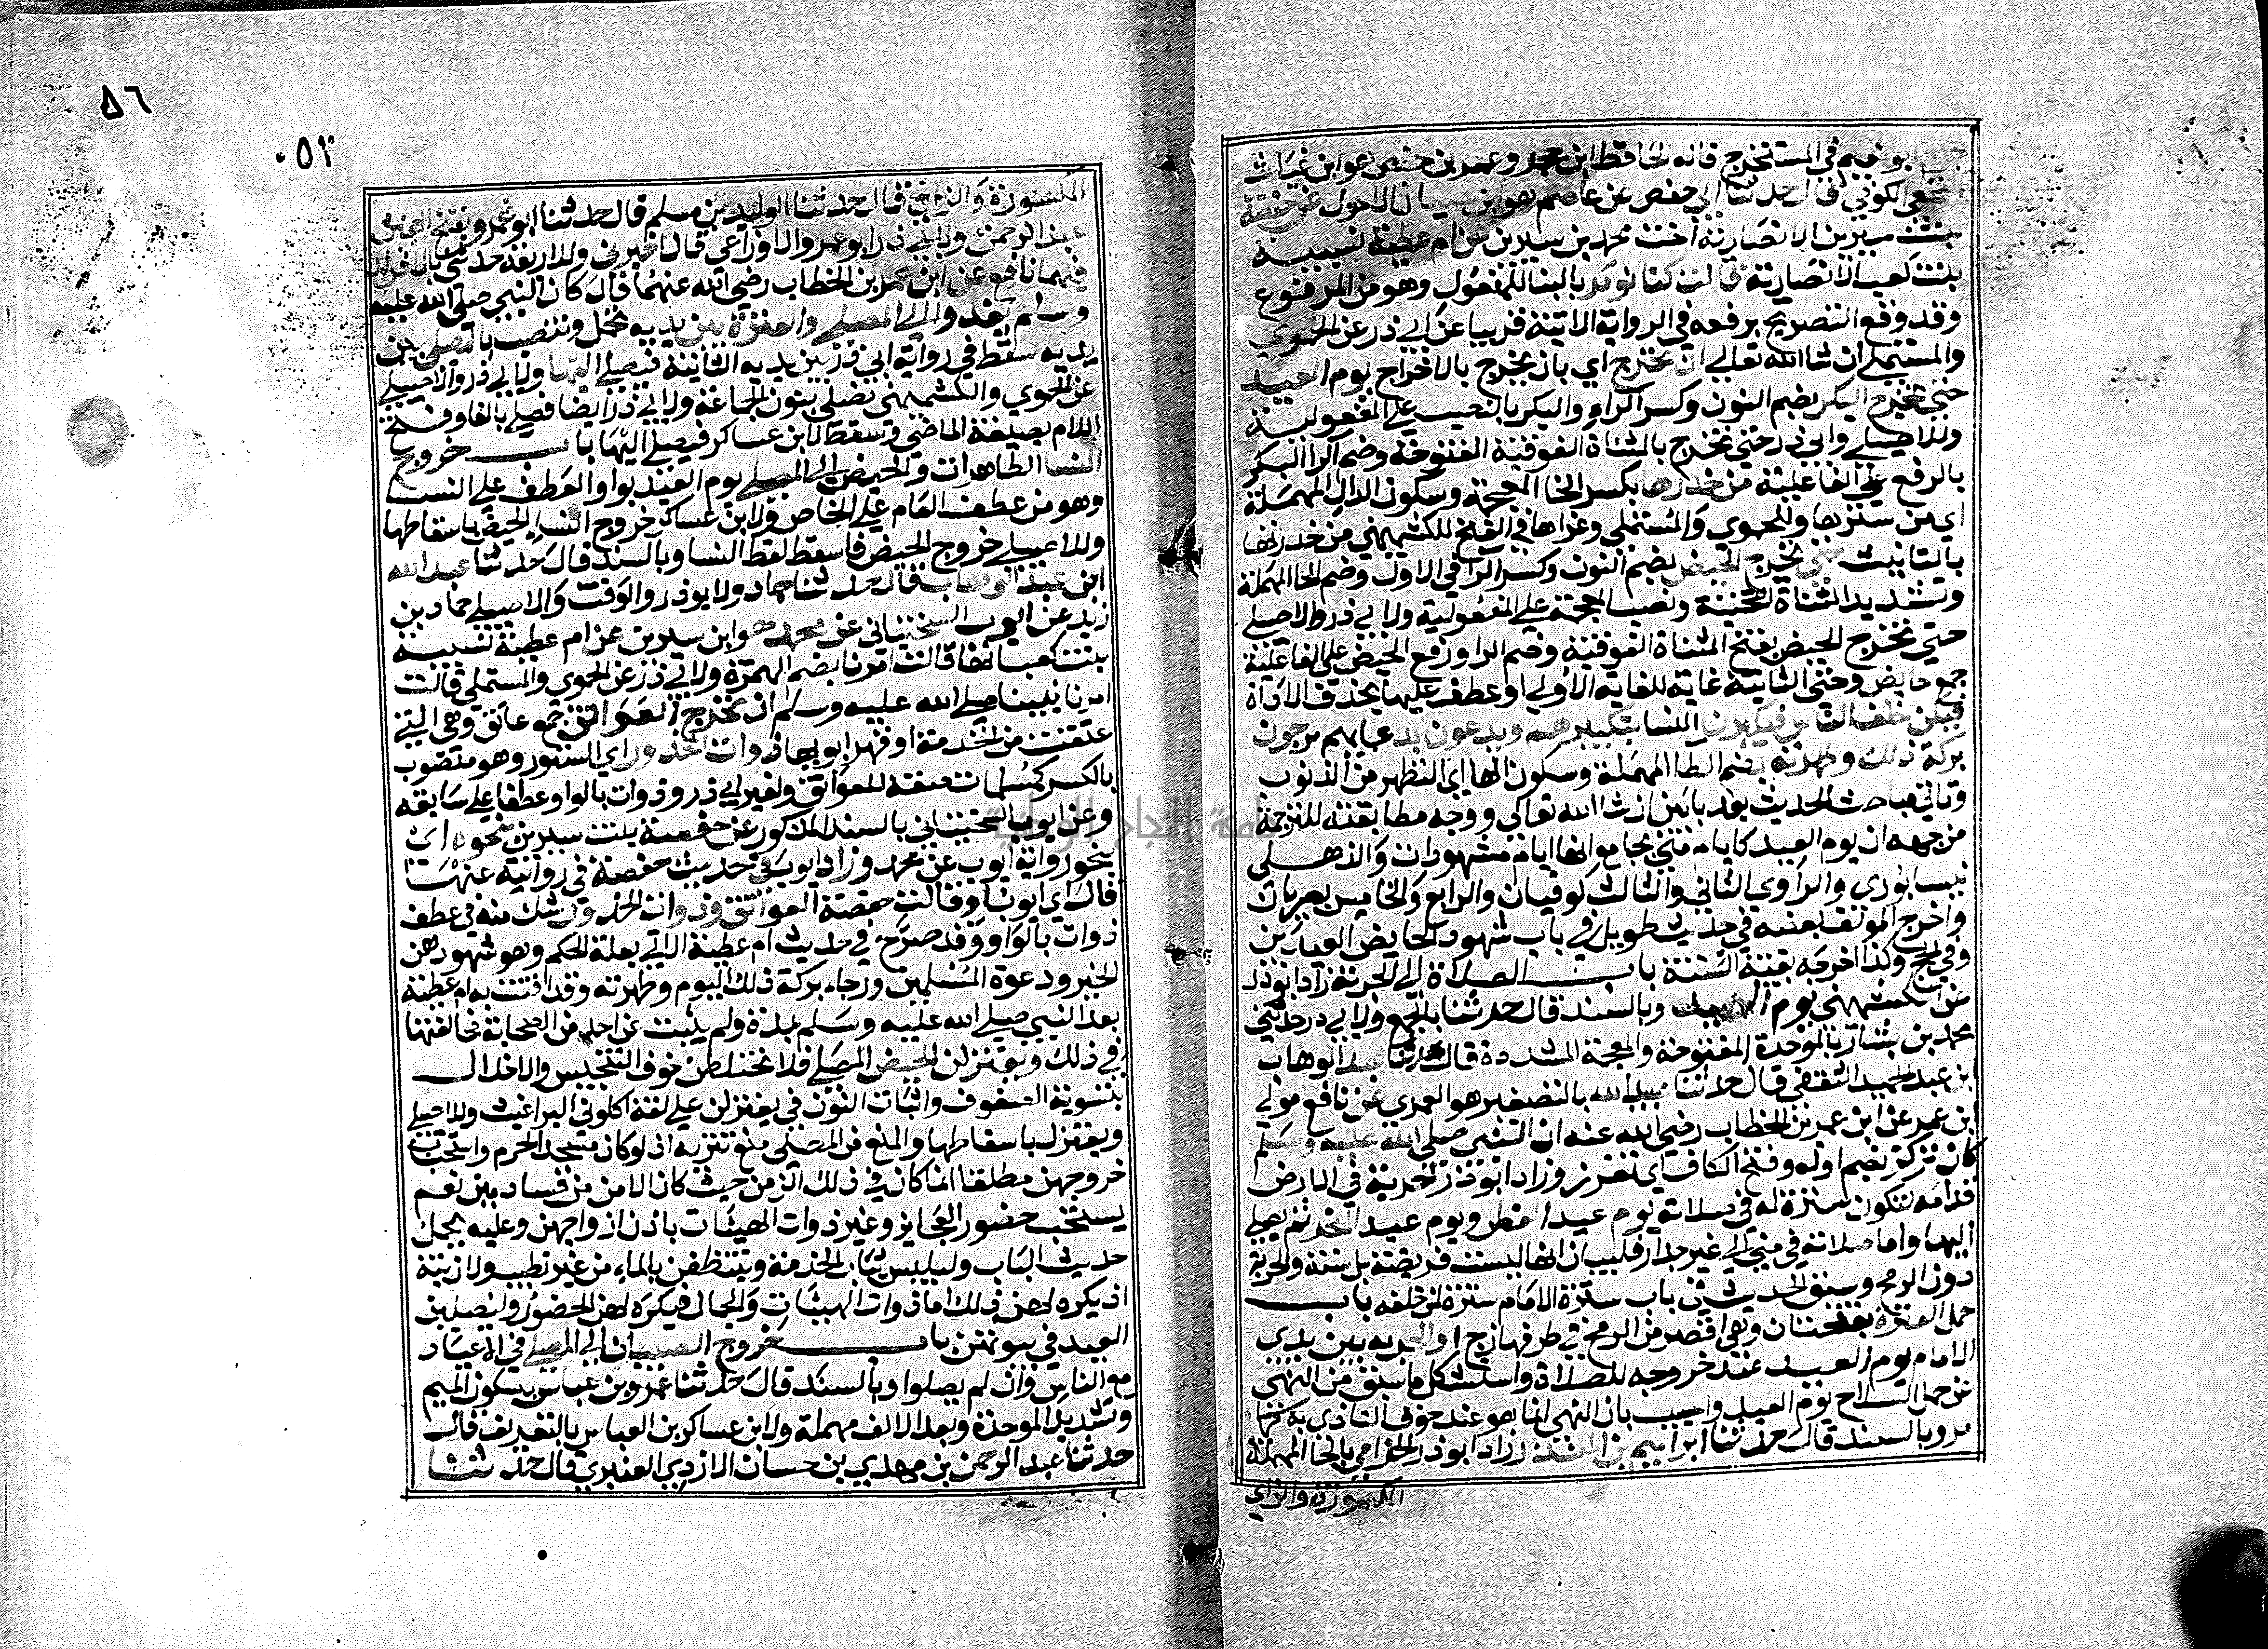 ابو نعيم في المستخرج قاله الحافظ ابن حجر وعمر بن حفص هو ابن غياث
النخعي الكوفي قال حدثنا ابي حفص عن عاصم هو ابن سليمان الاحول عن حفصة
بنت سيرين الانصارية اخت محمد بن سيرين عن ام عطية نسيبة
بنت كعب الانصارية قالت كنا نومر بالبنا للمفعول وهو من المرفوع
وقد وقع التصريح برفعه في الرواية الاتية قريبا عن ابي ذر عن الحموي
والمستملي ان شا الله تعالي ان نخرج اي بان نخرج بالاخراج يوم العيد
حتي نخرج البكر بضم النون وكسر الراء والبكر بالنصب علي المفعولية
وللاصيلي وابي ذر حتي تخرج بالمثناة الفوقية المفتوحة وضم الرا البكر
بالرفع علي الفاعلية من خدرها بكسر الخا المعجمة وسكون الدال المهملة
اي من سترها وللحموي والمستملي وعزاها في الفتح للكشميهني من خدرتها
بالتانيث حتي نخرج الحيض بضم النون وكسر الرا في الاول وضم الحا المهملة
وتشديد المثناة التحتية ونصب المعجمة علي المفعولية ولابي ذر والاصيلي
حتي تخرج الحيض بفتح المثناة الفوقية وضم الرا ورفع الحيض علي الفاعلية
جمع حايض وحتي الثانية غاية للغاية الاولي او عطف عليها بحذف الاداة
فيكن خلف الناس فيكبرن النسا بتكبيرهم ويدعون بدعايهم يرجون
بركة ذلك وطهرته بضم الطا المهملة وسكون الها اي التطهر من الذنوب
وتاتي مباحث الحديث بعد بابين ان شا الله تعالي ووجه مطابقته للترجمة
من جهه ان يوم العيد كايام مني بجامع انها ايام مشهودات والذهلي
نيسابوري والراوي الثاني والثالث كوفيان والرابع والخامس بصريان
واخرج المولف بعضه في حديث طويل في باب شهود الحايض العيدين
وفي الحج وكذا اخرجه بقية الستة باب الصلاة الي الحربة زاد ابو ذر
عن الكشميهني يوم العيد وبالسند قال حدثنا بالجمع ولابي ذر حدثني
محمد بن بشار بالموحدة المفتوحة والمعجمة المشددة قال حدثنا عبد الوهاب
ابن عبد المجيد الثقفي قال حدثنا عبيد الله بالتصغير هو العمري عن نافع مولي
ابن عمر عن ابن عمر بن الخطاب رضي الله عنه ان النبي صلي الله عليه وسلم
كان تركز بضم اوله وفتح الكاف اي تغرز وزاد ابو ذر له الحربة في الارض
قدامه لتكون سترة له في صلاته يوم عيد الفطر ويوم عيد النحر ثم يصلي
اليها واما صلاته في مني الي غير جدار فلبيان انها ليست فريضة بل سنة والحربة
دون الرمح وسبق الحديث في باب سترة الامام سترة لمن خلفه باب
حمل العنزة بفتحتان وهي اقصر من الرمح في طرفها زج او الحربه بين يدي
الامام يوم العيد عند خروجه للصلاة واستشكل ما سبق من النهي
عن حمل السلاح يوم العيد واجيب بان النهي انما هو عند خوف التاذي به كما
مر وبالسند قال حدثنا ابراهيم بن المنذر زاد ابو ذر الحزامي بالحا المهملة
المكسورة والزاي
٥٦
٥٣
المكسورة والزاي قال حدثنا الوليد بن مسلم قال حدثنا ابو عمرو بفتح العين
عبد الرحمن ولابي ذر ابو عمرو الاوزاعي قال اخبرني وللاربعة حدثني
فيهما نافع عن ابن عمر بن الخطاب رضي الله عنهما قال كان النبي صلي الله عليه
وسلم يغدو الي المصلي والعنزة بين يديه تحمل وتنصب بالمصلي بين
يديه سقط في رواية ابي ذر بين يديه الثانية فيصلي اليها ولابي ذر والاصيلي
عن الحموي والكشميهني نصلي بنون الجماعة ولابي ذر ايضا فصلي بالفا وفتح
اللام بصيغة الماضي وسقط لابن عساكر فيصلي اليها باب خروج
النسا الطاهرات والحيض الي المصلي يوم العيد بواو العطف علي النسا
وهو من عطف العام علي الخاص ولابن عساكر خروج النسا الحيض باسقاطها
وللاصيلي خروج الحيض فاسقط لفظ النسا وبالسند قال حدثنا عبد الله
ابن عبد الوهاب قال حدثنا حماد ولابوي ذر والوقت والاصيلي حماد بن
زيد عن ايوب السختياني عن محمد هو ابن سيرين عن ام عطية نسيبة
بنت كعب انها قالت امرنا بضم الهمزة ولابي ذر عن الحموي والمستملي قالت
امرنا نبينا صلي الله عليه وسلم ان نخرج العواتق جمع عاتق وهي التي
عتقت من الخدمة او قهر ابويها ذوات الخدور اي الستور وهو منصوب
بالكسر كمسلمات صفة للعواتق ولغير ابي ذر وذوات بالواو عطفا علي سابقه
وعن ايوب السختياني بالسند المذكور عن حفصة بنت سيرين بنحوه اي
بنحو رواية ايوب عن محمد وزاد ايوب في حديث حفصة في روايته عنها
قال اي ايوب او قالت حفصة العواتق وذوات الخدور شك منه في عطف
ذوات بالواو وقد صرح في حديث ام عطية الاتي بعلة الحكم وهو شهودهن
الخير ودعوة المسلمين ورجاء بركة ذلك اليوم وطهرته وقد افتت به ام عطية
بعد النبي صلي الله عليه وسلم بمدة ولم يثبت عن احد من الصحابة مخالفتها
في ذلك ويعتزلن الحيض المصلي فلا يختلطن خوف التنجيس والاخلال
بتسوية الصفوف واثبات النون في يعتزلن علي لغة اكلوني البراغيث وللاصيلي
ويعتزل باسقاطها والمنع من المصلي منع تنزيه اذ لو كان مسجدا لحرم واستحباب
خروجهن مطلقا انما كان في ذلك الزمن حيث كان الامن من فسادهن نعم
يستحب حضور العجايز وغير ذوات الهيئات باذن ازواجهن وعليه يحمل
حديث الباب وليلبس ثياب الخدمة ويتنظفن بالماء من غير تطيب ولا زينة
اذ يكره لهن ذلك اما ذوات الهيئات والجمال فيكره لهن الحضور وليصلين
العيد في بيوتهن باب خروج الصبيان الي المصلي في الاعياد
مع الناس وان لم يصلوا وبالسند قال حدثنا عمرو بن عباس بسكون الميم
وتشديد الموحدة وبعد الالف مهملة ولابن عساكر بن العباس بالتعريف قال
حدثنا عبد الرحمن بن مهدي بن حسان الازدي العنبري قال حدثنا